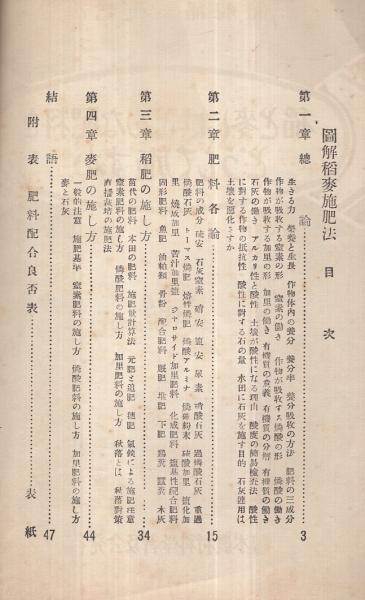 圖解稻麥施肥法 目次
第一章 總論 3
生きる力 榮養と生長 作物体內の養分 養分率 養分吸收の方法 肥料の三成分
作物が吸收する窒素の形 窒素の働き 作物が吸收する燐酸の形 燐酸の働き
作物が吸收する加里の形 加里の働き 有機質の意義 有機質の分解 有機質の働き
石灰の働き アルカリ性と酸性 土壤が酸性になる理由 酸度の簡易檢査法 酸
に對する作物の抵抗性 酸性に對する石の量 水田に石灰を施す目的 石灰連用は
土壤を惡化さすか
第二章 肥料各論 15
肥料の成分 硫安 石灰窒素 硝安 塩安 尿素 過燐酸石灰 重過
燐酸石灰 トーマス燐肥 熔性燐肥 燐酸アルミナ 燐礦粉末 硫酸加里 塩化加
里 燒成加里 苦汁加里塩 ジャロサイド加里肥料 化成肥料 塩基性配合肥料
固形肥料 魚肥 油粕類 骨粉 配合肥料 廐肥 堆肥 下肥 鷄糞 蠶糞 木灰
第三章 稻肥の施し方 34
苗代の肥料 本田の肥料 施肥量計算法 元肥と追肥 穗肥 氣候による施肥注意
窒素肥料の施し方 燐酸肥料の施し方 加里肥料の施し方 秋落とは 秋落對策
直播栽培の施肥法
第四章 麥肥の施し方 44
一般的注意 施肥基準 窒素肥料の施し方 燐酸肥料の施し方 加里肥料の施し方
麥と石灰
結語 47
附表 肥料配合良否表 表紙